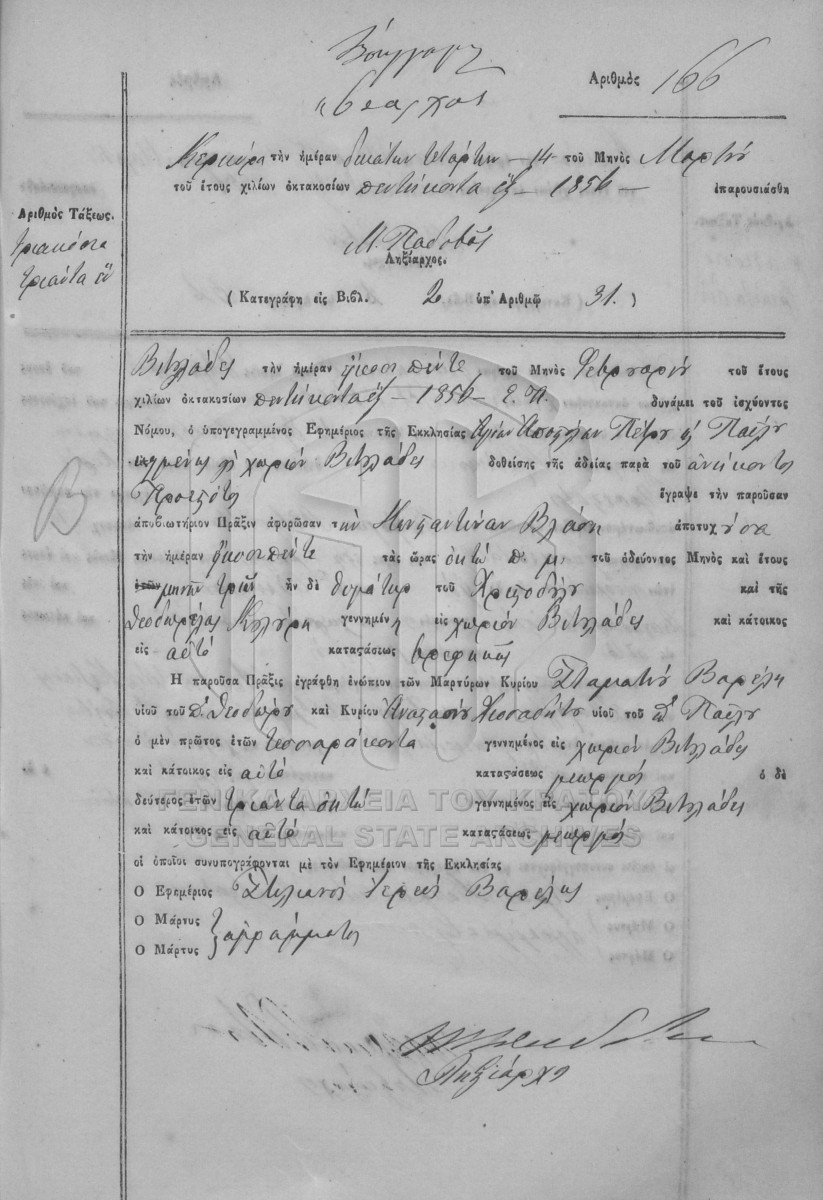 Ἀριθμὸς 166
Κερκύρᾳ τὴν ἡμέραν δεκάτην τετάρτην - 14 - τοῦ Μηνὸς Μαρτίου
τοῦ ἔτους χιλίων ὀκτακοσίων πεντήκοντα ἕξ - 1856 - ἐπαρουσιάσθη
Ἀριθμὸς Τάξεως.
τριακόσια
τριάντα ἓν
Μ. Παδοβᾶς
Ληξίαρχος.
( Κατεγράφη εἰς Βιβλ. 2 ὑπ' Ἀριθμῷ 31. )
Βιταλάδες τὴν ἡμέραν εἴκοσι πέντε τοῦ Μηνὸς Φεβρουαρίου τοῦ ἔτους
χιλίων ὀκτακοσίων πεντήκοντα ἕξ - 1856 - Ε.Π. δυνάμει τοῦ ἰσχύοντος
Νόμου, ὁ ὑπογεγραμμένος Ἐφημέριος τῆς Ἐκκλησίας Ἁγίων Ἀποστόλων Πέτρου καὶ Παύλου
χωρίον Βιταλάδες δοθείσης τῆς ἀδείας παρὰ τοῦ ἀνήκοντος
Προεστῶτος ἔγραψε τὴν παροῦσαν
ἀποβιωτήριον Πρᾶξιν ἀφορῶσαν τὴν Κωνσταντίναν Βλάση ἀποτυχοῦσα
τὴν ἡμέραν εἴκοσι πέντε τὰς ὥρας ὀκτὼ π. μ. τοῦ ὁδεύοντος Μηνὸς καὶ ἔτους
ἐτῶν μηνῶν τριῶν ἦν δὲ θυγάτηρ τοῦ Χριστοδούλου καὶ τῆς
Θεοδωρέλας γεννημένη εἰς χωρίον Βιταλάδες καὶ κάτοικος
εἰς αὐτὸ καταστάσεως βρεφικῆς
Ἡ παροῦσα Πρᾶξις ἐγράφθη ἐνώπιον τῶν Μαρτύρων Κυρίου Σταματίου Βαρέλη
υἱοῦ τοῦ π. Θεοδώρου καὶ Κυρίου Ἀναστασίου υἱοῦ τοῦ π. Παύλου
ὁ μὲν πρῶτος ἐτῶν τεσσαράκοντα γεννημένος εἰς χωρίον Βιταλάδες
καὶ κάτοικος εἰς αὐτὸ καταστάσεως γεωργὸς ὁ δὲ
δεύτερος ἐτῶν τριάντα ὀκτὼ γεννημένος εἰς χωρίον Βιταλάδες
καὶ κάτοικος εἰς αὐτὸ καταστάσεως γεωργὸς
οἱ ὁποῖοι συνυπογράφονται μὲ τὸν Ἐφημέριον τῆς Ἐκκλησίας
Ὁ Ἐφημέριος Στυλιανὸς Ἱερεὺς Βαρέλης
Ὁ Μάρτυς ἀγράμματοι
Ὁ Μάρτυς
Ληξίαρχος
ΓΕΝΙΚΑ ΑΡΧΕΙΑ ΤΟΥ ΚΡΑΤΟΥΣ
GENERAL STATE ARCHIVES